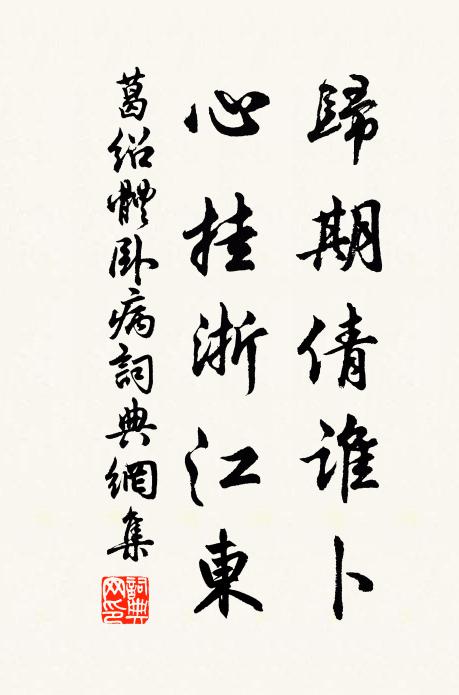 歸期倩誰卜
心挂浙江東
葛紹體臥病詞典網集
詞典网印